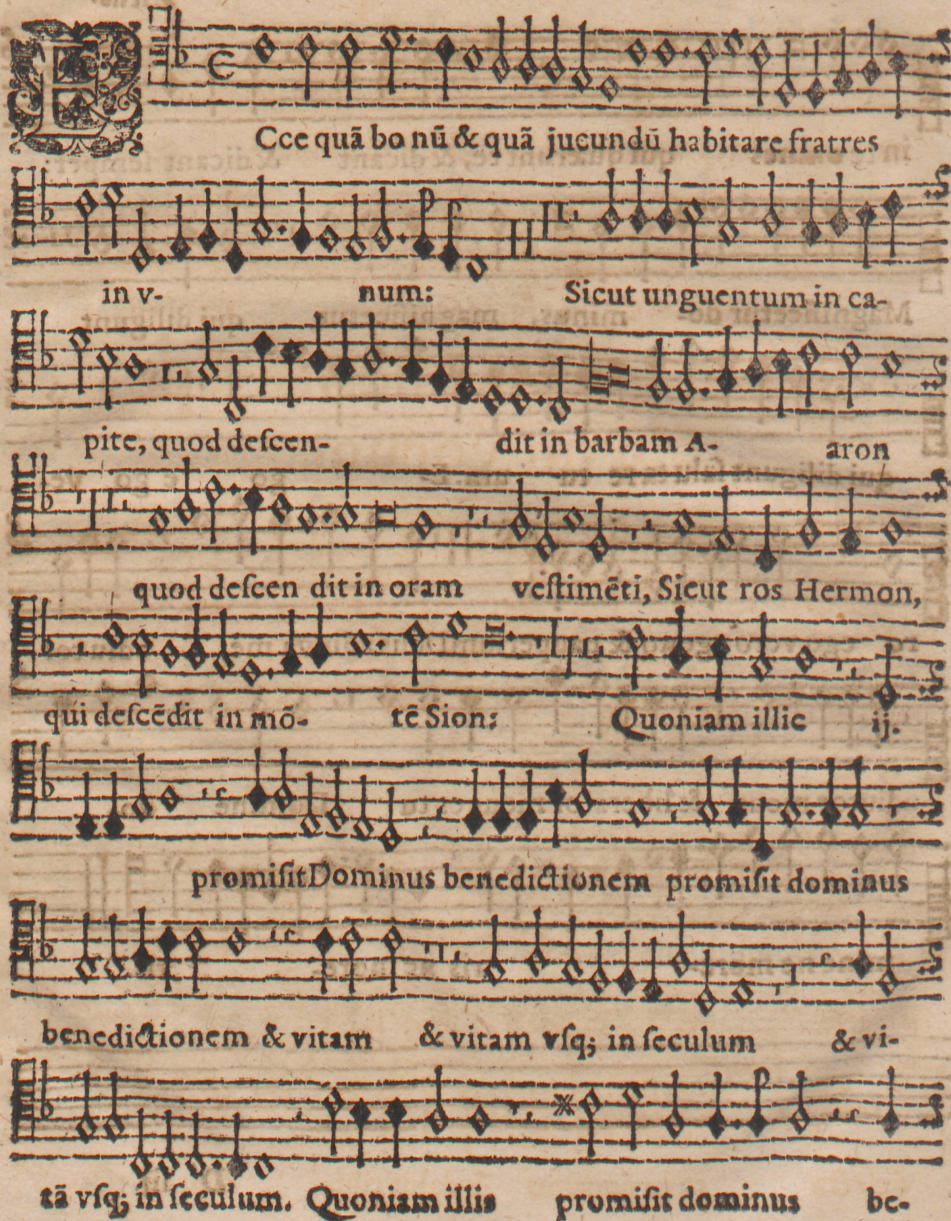 ECce quā bo nū & quā jucundū habitare fratres
in v- num: Sicut unguentum in ca-
pite, quod deſcen- dit in barbam A- aron
quod deſcen dit in oram veſtimēti, Sicut ros Hermon,
qui deſcēdit in mō- tē Sion: Quoniam illic ij.
promiſit Dominus benedictionem promiſit dominus
benedictionem & vitam & vitam vſq; in ſeculum & vi-
tā vſq; in ſeculum. Quoniam illis promiſit dominus be-